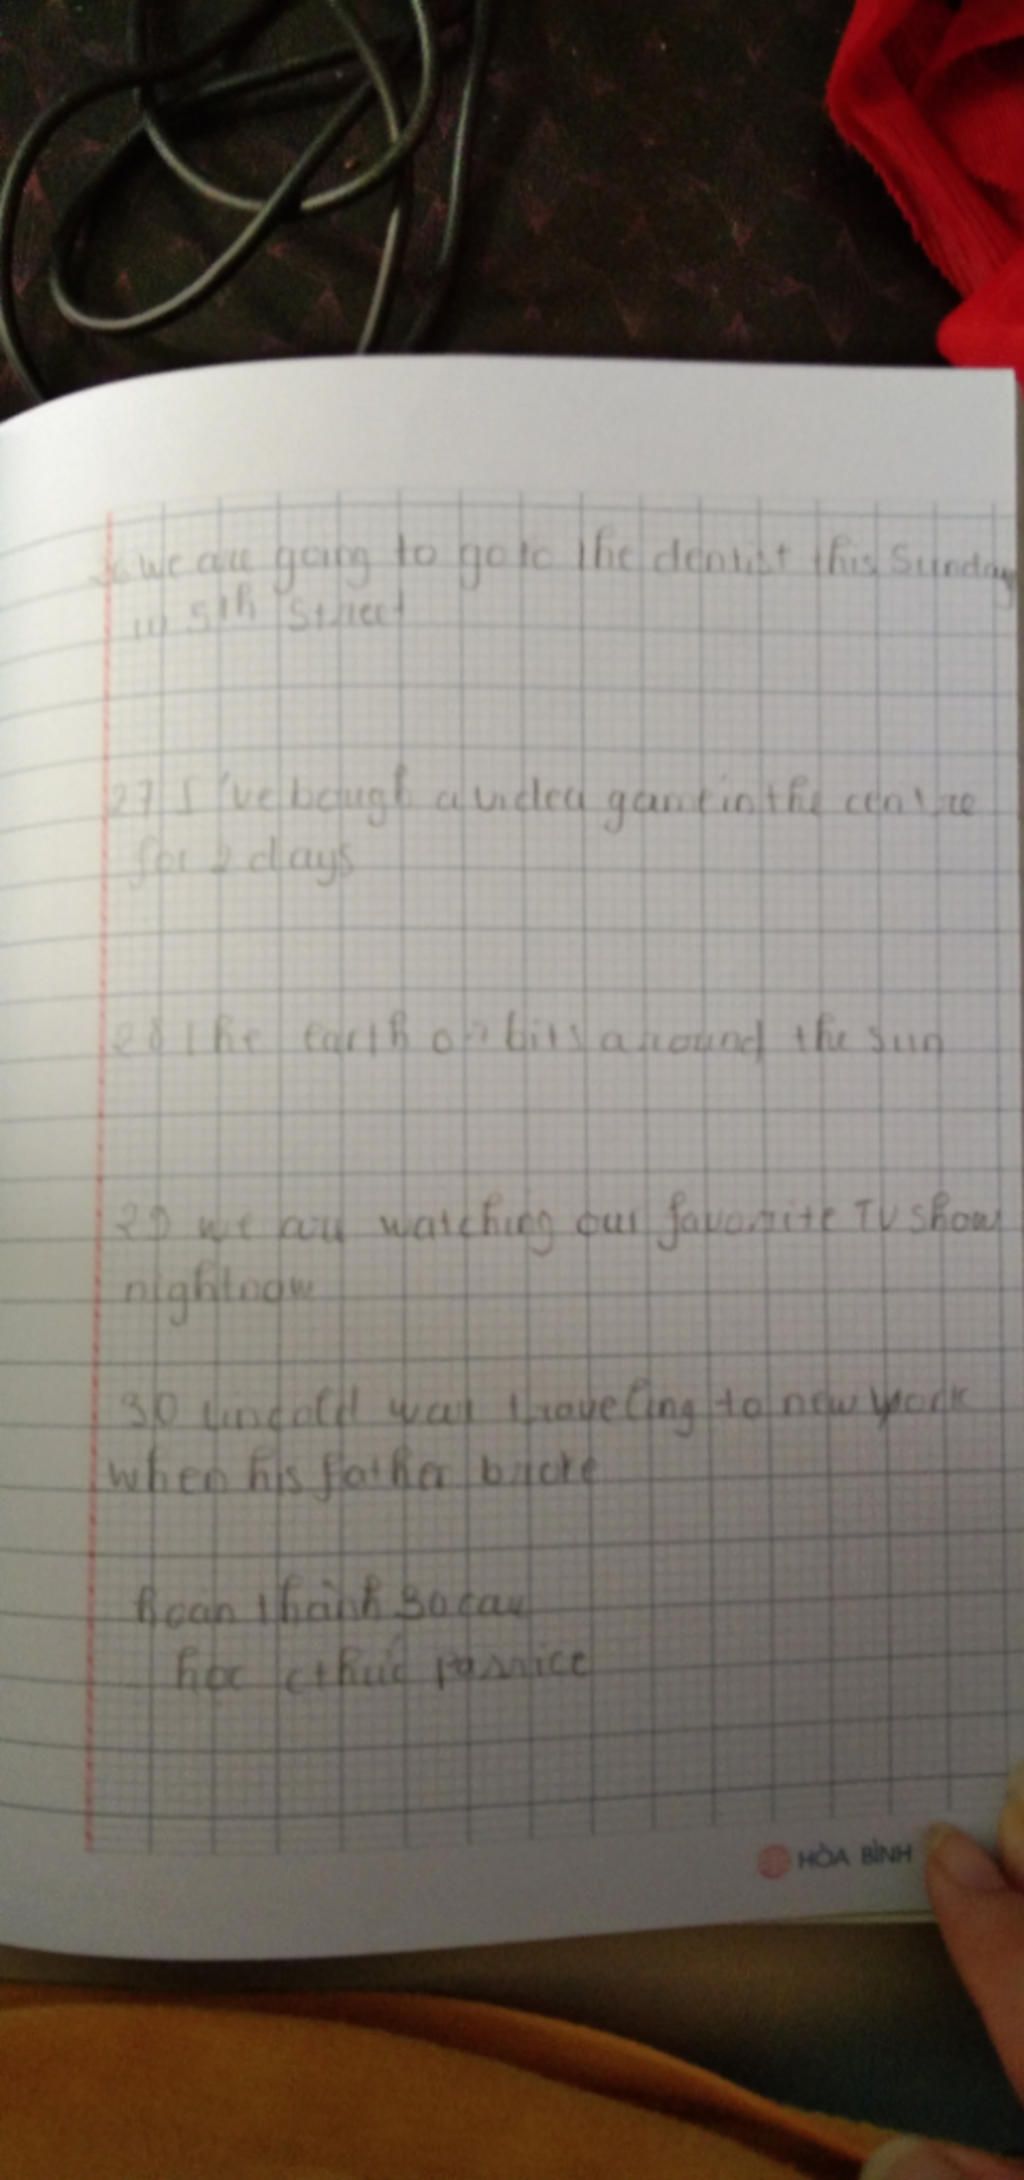 we are going to go to the dentist this Sunday
in 5th Street
27 I've bough a video game in the centre
for 2 days
28 The earth orbits around the sun
29 we are watching our favorite TV show
right now
30 was traveling to new york
when his father
hoàn thành 30 câu
học
HÒA BÌNH